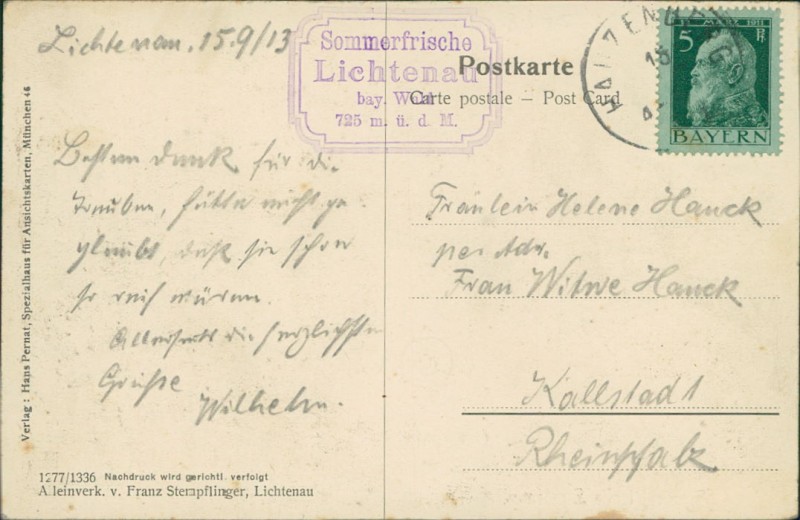 Lichtenau, 15.9/13
Sommerfrische
Lichtenau
bay. Wald
725 m. ü. d. M.
Postkarte
Carte postale – Post Card
HAUZENBERG
12. MÄRZ 1911
5 Pf
BAYERN
Besten Dank für die
Trauben, hätte nicht ge-
glaubt, daß sie schon
so reif wären.
Allerseits die herzlichsten
Grüße
Wilhelm.
Fräulein Helene Hauck
per Adr.
Frau Witwe Hauck
Kallstadt
Rheinpfalz
Verlag: Hans Pernat, Spezialhaus für Ansichtskarten, München 46
1277/1336 Nachdruck wird gerichtl. verfolgt
Alleinverk. v. Franz Stempflinger, Lichtenau